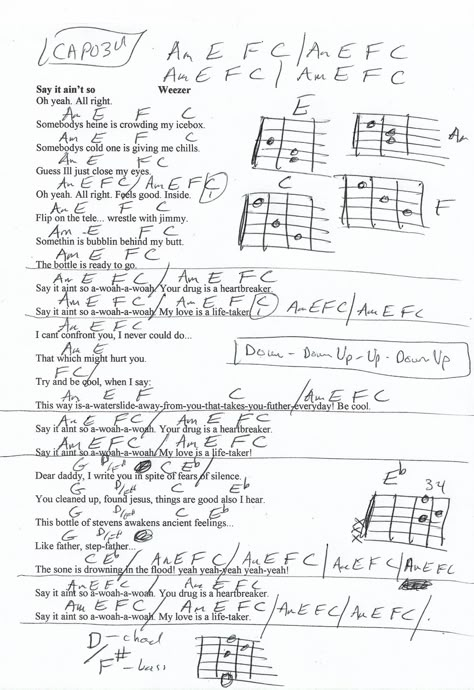 CAPO 3
Am E F C / Am E F C
Am E F C / Am E F C
Say it ain't so Weezer
Oh yeah. All right.
E
Am E F C
Somebodys heine is crowding my icebox.
Am
Am E F C
Somebodys cold one is giving me chills.
Am E F C
Guess Ill just close my eyes.
C
Am E F C / Am E F C
Oh yeah. All right. Feels good. Inside.
F
Am E F C
Flip on the tele... wrestle with jimmy.
Am E F C
Somethin is bubblin behind my butt.
Am E F C
The bottle is ready to go.
Am E F C / Am E F C
Say it aint so a-woah-a-woah. Your drug is a heartbreaker
Am E F C / Am E F C
Say it aint so a-woah-a-woah. My love is a life-taker
Am E F C / Am E F C
Am E F C
I cant confront you, I never could do...
Down - Down Up - Up - Down Up
Am E
That which might hurt you.
F C /
Try and be cool, when I say:
Am E F C / Am E F C
This way is-a-waterslide-away-from-you-that-takes-you-futher-everyday! Be cool.
Am E F C / Am E F C
Say it aint so a-woah-a-woah. Your drug is a heartbreaker.
Am E F C / Am E F C
Say it aint so a-woah-a-woah. My love is a life-taker!
G D/F# C Eb
Dear daddy, I write you in spite of fears of silence.
Eb
34
G D/F# C Eb
You cleaned up, found jesus, things are good also I hear.
G D/F# C Eb
This bottle of stevens awakens ancient feelings...
G D/F#
Like father, step-father...
C Eb / Am E F C / Am E F C / Am E F C / Am E F C
The sone is drowning in the flood! yeah yeah-yeah yeah-yeah!
Am E F C / Am E F C
Say it aint so a-woah-a-woah. You drug is a heartbreaker.
Am E F C / Am E F C / Am E F C / Am E F C / .
Say it aint so a-woah-a-woah. My love is a life-taker.
D - chod
/
F# - bass